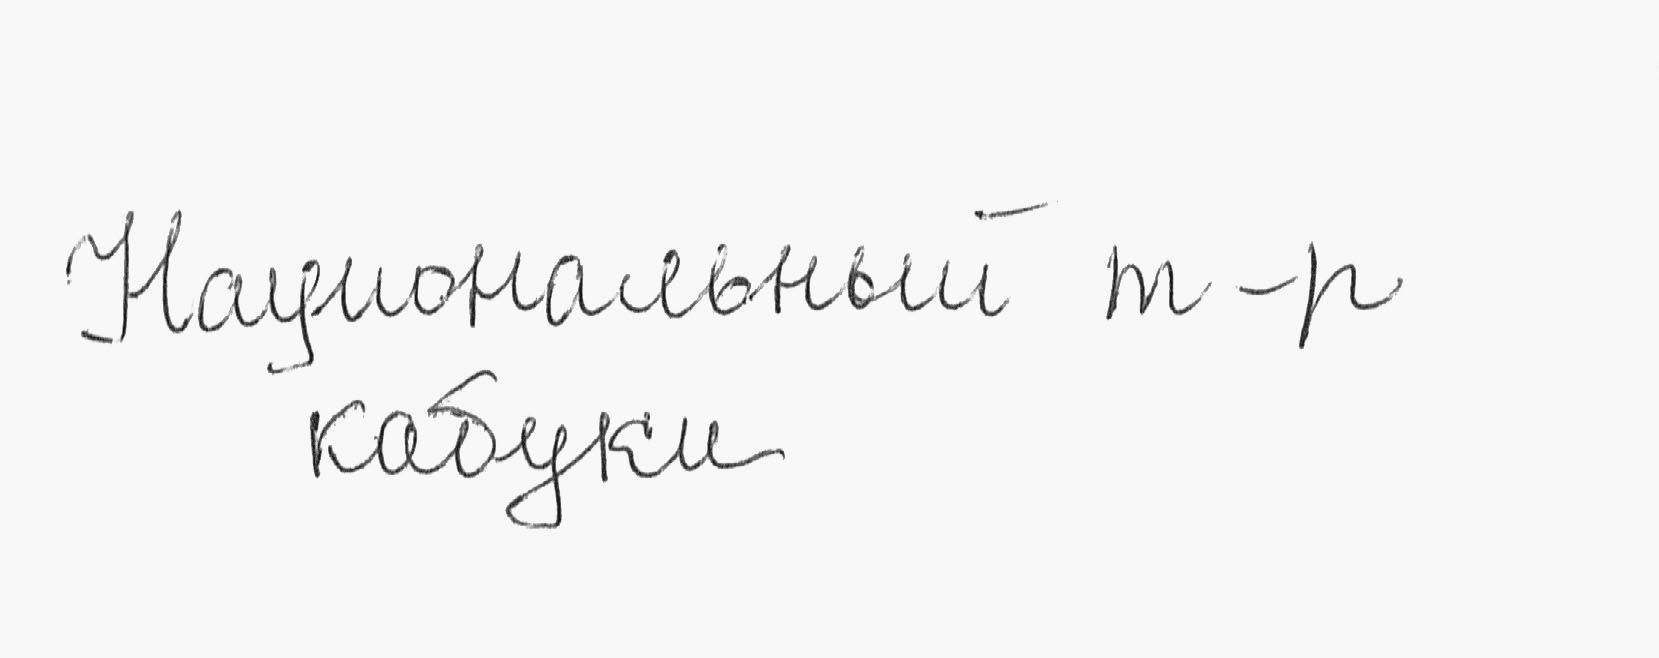 Национальный т-р
кабуки